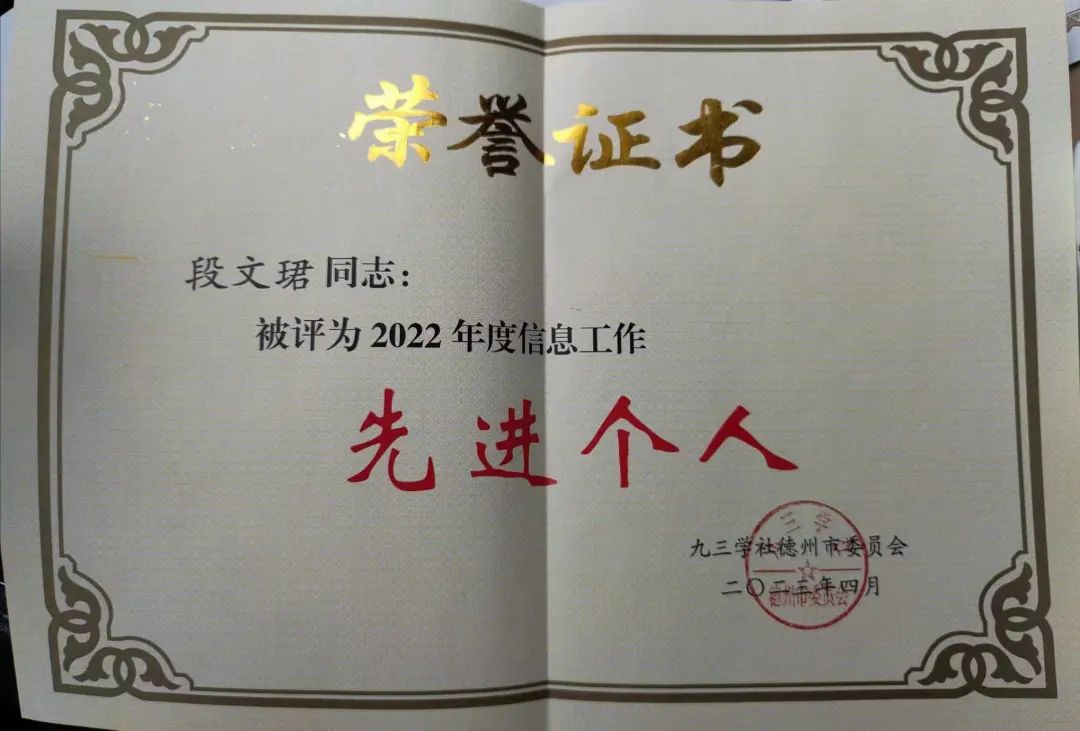 荣誉证书
段文珺同志:
被评为2022年度信息工作
先进个人
九三学社德州市委员会
二〇二三年四月
三学
德州市委员会